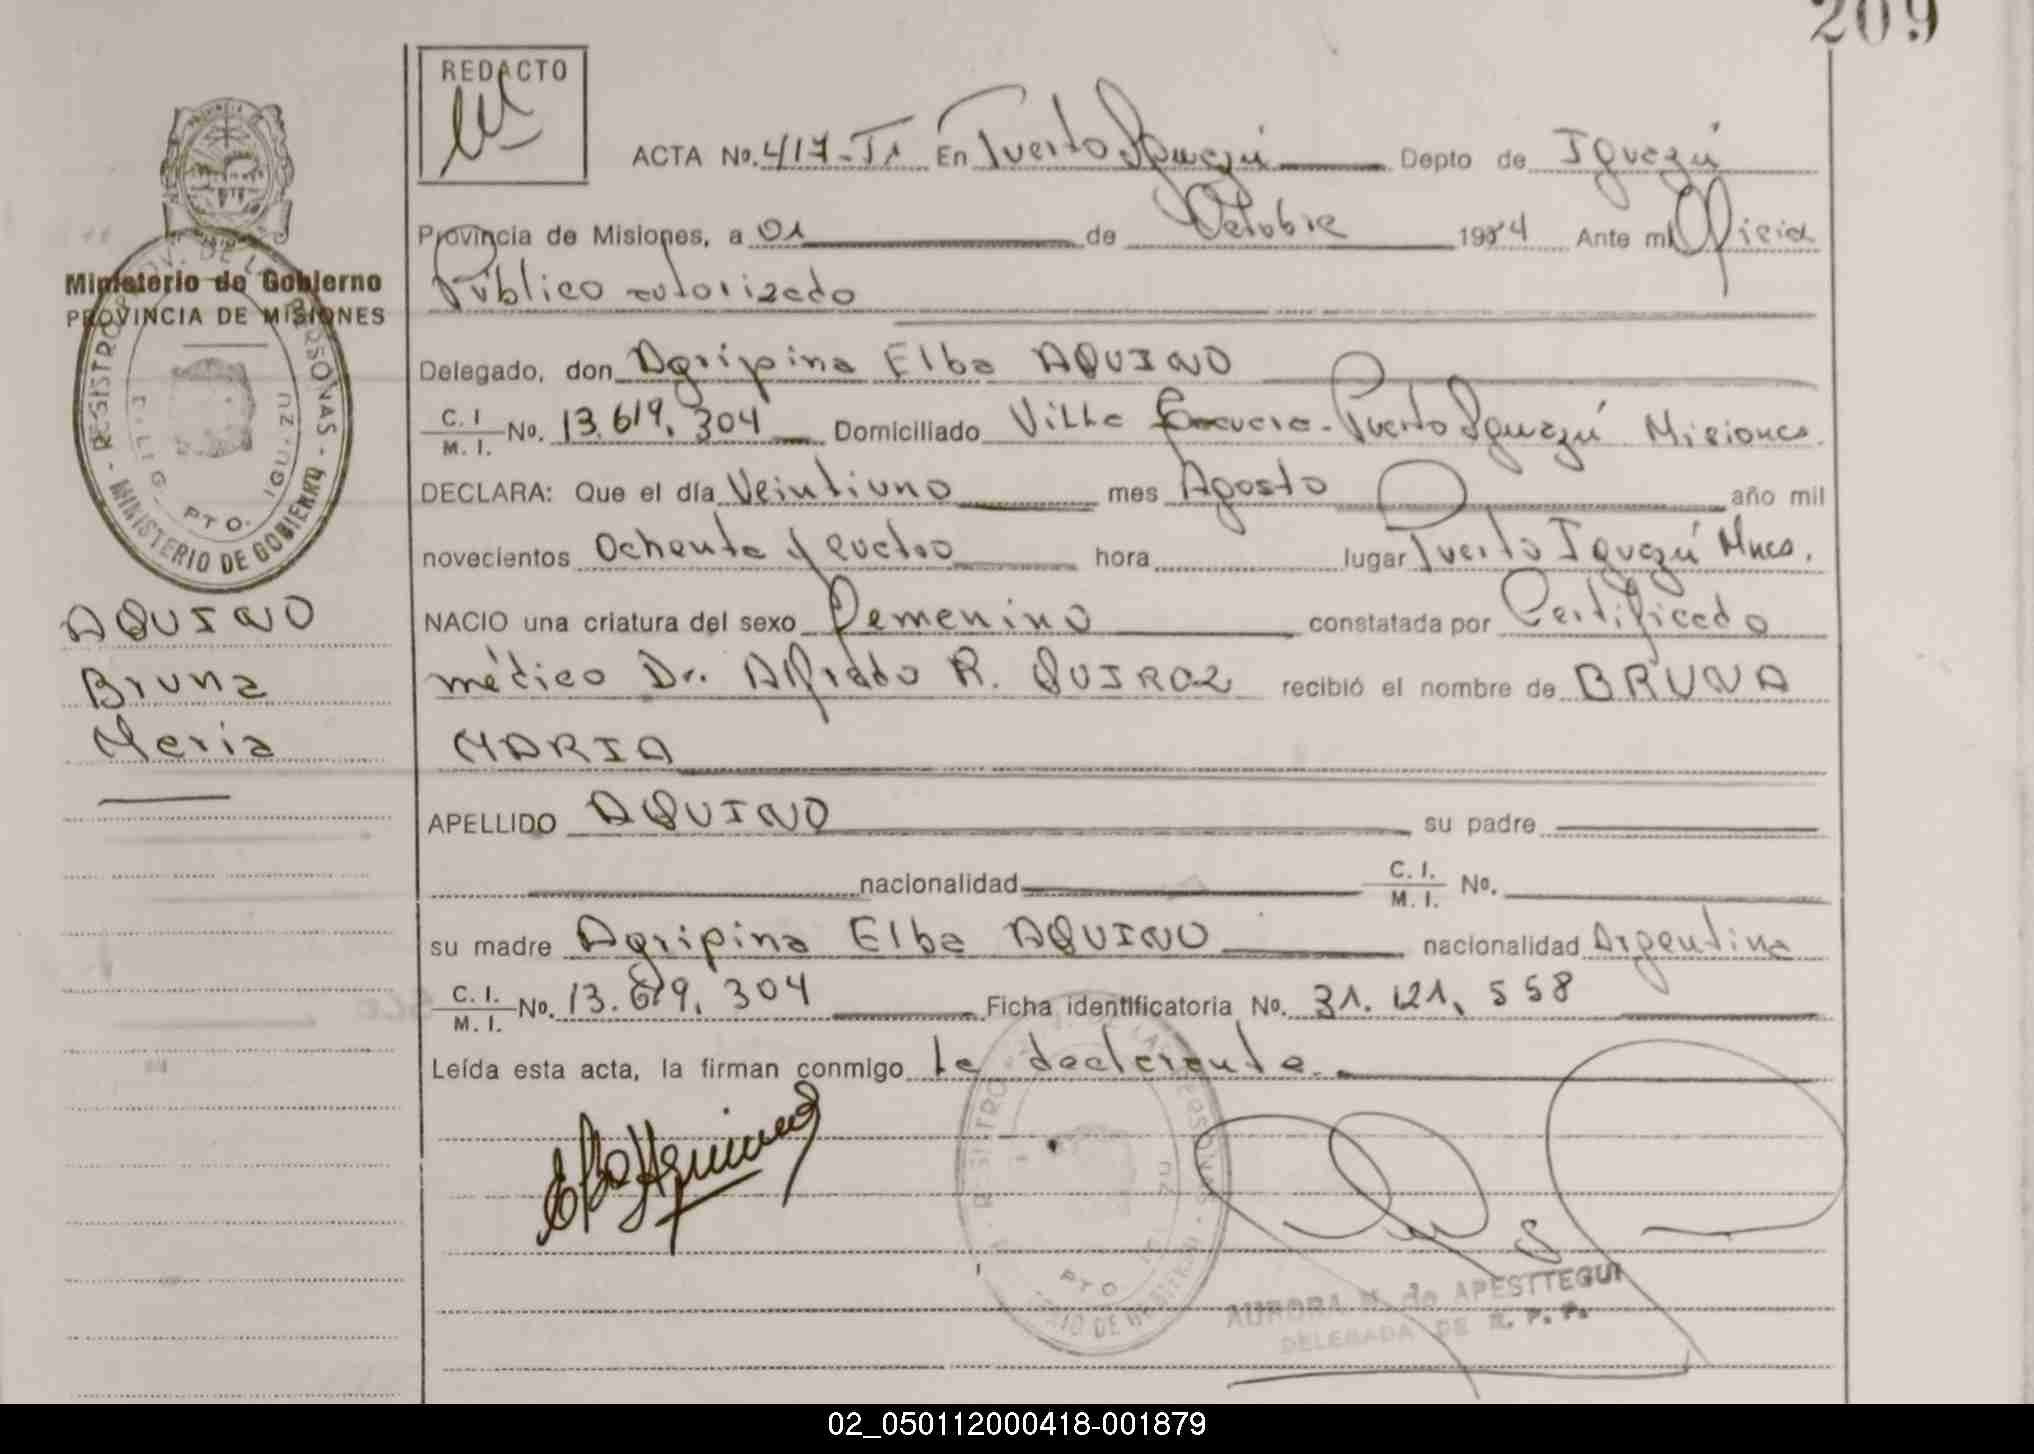 209
REDACTO
ACTA No. 417-T1 En Puerto Iguazú Depto de Iguazú
Provincia de Misiones, a 01 de Octubre 1984 Ante mi Oficial
Público autorizado
Ministerio de Gobierno
PROVINCIA DE MISIONES
Delegado, don Agripina Elba AQUINO
C. I. / M. I. No. 13.619.304 Domiciliado Villa Puerto Iguazú Misiones.
DECLARA: Que el día Veintiuno mes Agosto año mil
novecientos Ochenta y cuatro hora lugar Puerto Iguazú Mnes.
NACIO una criatura del sexo Femenino constatada por Certificado
médico Dr. Alfredo R. QUIROZ recibió el nombre de BRUNA
MARIA
AQUINO
Bruna
Maria
APELLIDO AQUINO su padre
nacionalidad C. I. / M. I. No.
su madre Agripina Elba AQUINO nacionalidad Argentina
C. I. / M. I. No. 13.619.304 Ficha identificatoria No. 31.121.558
Leída esta acta, la firman conmigo la declarante.
Elba Aquino
REGISTRO PROV. DE LAS PERSONAS - MINISTERIO DE GOBIERNO
DELEG. PTO. IGUAZU
AURORA M. de APESTTEGUI
DELEGADA DE R. P. P.
02_050112000418-001879